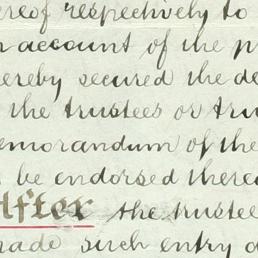 ereof respectively to
account of the p
hereby secured the de
the trustees or tru
emorandum of the
be endorsed there
After the trustee
made such entry